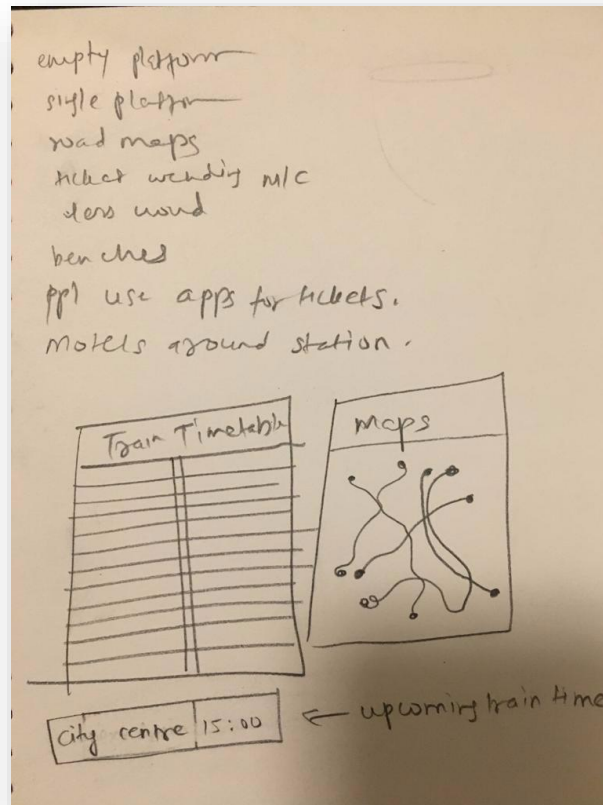 empty platform
single platform
road maps
ticket vending M/C
less crowd
benches
ppl use apps for tickets.
Motels around station.
Train Timetable
maps
city centre 15:00
← upcoming train time